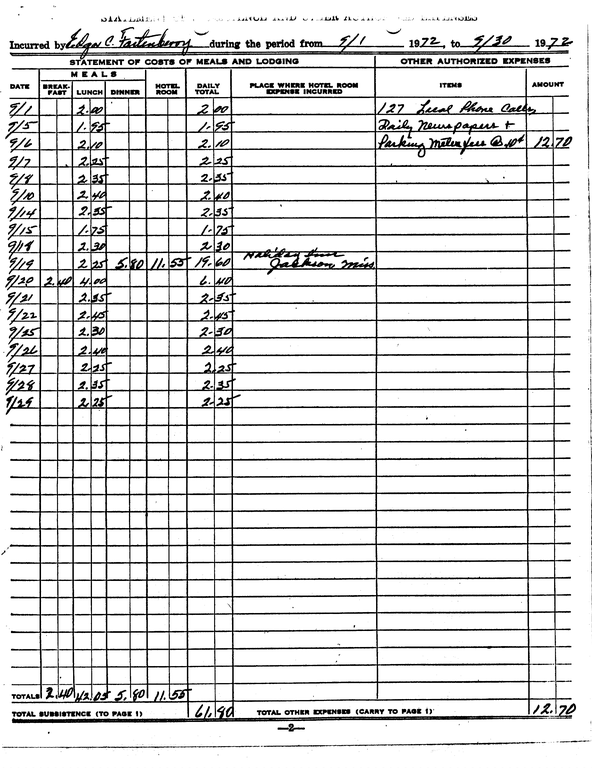 Incurred by Edgar C. Fortenberry during the period from 9/1 1972, to 9/30 1972
STATEMENT OF COSTS OF MEALS AND LODGING OTHER AUTHORIZED EXPENSES
MEALS
DATE BREAK-FAST LUNCH DINNER HOTEL ROOM DAILY TOTAL PLACE WHERE HOTEL ROOM EXPENSE INCURRED ITEMS AMOUNT
9/1 2.00 2.00 127 Local Phone Calls,
9/5 1.95 1.95 Daily Newspapers +
9/6 2.10 2.10 Parking Meter fees @ 10¢ 12.70
9/7 2.25 2.25
9/8 2.35 2.35
9/10 2.40 2.40
9/14 2.35 2.35
9/15 1.75 1.75
9/18 2.30 2.30
9/19 2.25 5.80 11.55 19.60 Holiday Inn Jackson Miss
9/20 2.40 4.00 6.40
9/21 2.35 2.35
9/22 2.45 2.45
9/25 2.30 2.30
9/26 2.40 2.40
9/27 2.25 2.25
9/28 2.35 2.35
9/29 2.25 2.25
TOTALS 2.40 42.05 5.80 11.55
TOTAL SUBSISTENCE (TO PAGE 1) 61.80 TOTAL OTHER EXPENSES (CARRY TO PAGE 1) 12.70
—2—